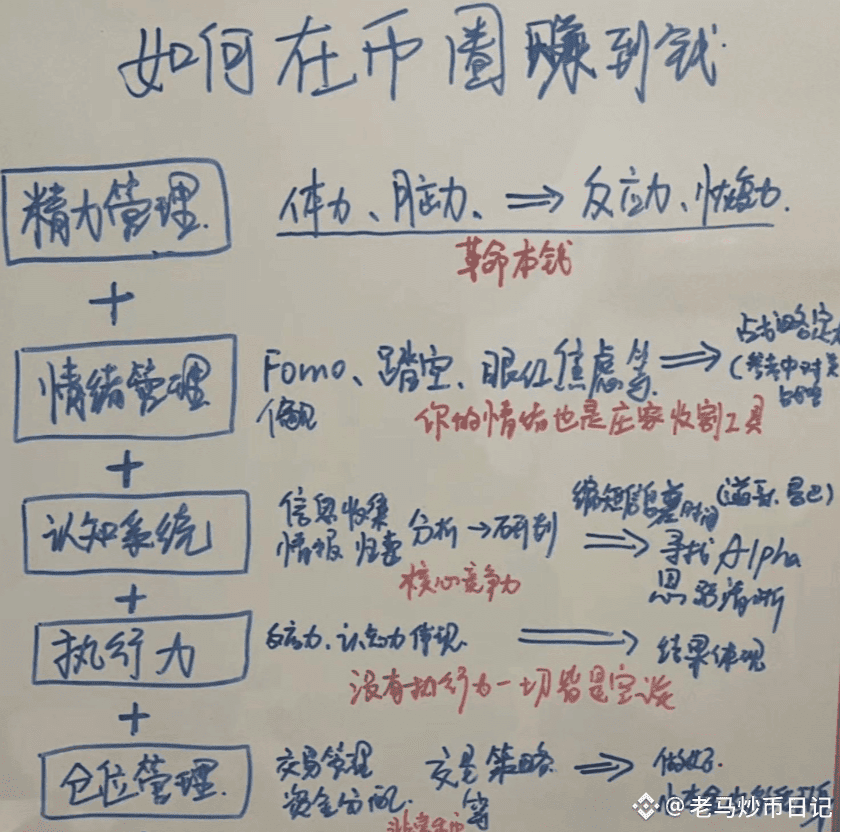 如何在币圈赚到钱
精力管理 体力、脑力、⇒ 反应力、恢复力.
革命本钱
+
情绪管理 Fomo、踏空、眼红焦虑等. ⇒
偏见
你的情绪也是庄家收割工具
+
认知系统 信息收集 分析→研判 ⇒ 缩短信息差时间
情报 归集 寻找 Alpha
核心竞争力 思路清晰
+
执行力 反应力、认知力体现. ⇒ 结果体现
没有执行力一切皆是空谈
+
仓位管理 交易管理 交易策略 ⇒ 做好.
资金分配. 等
@老马炒币日记